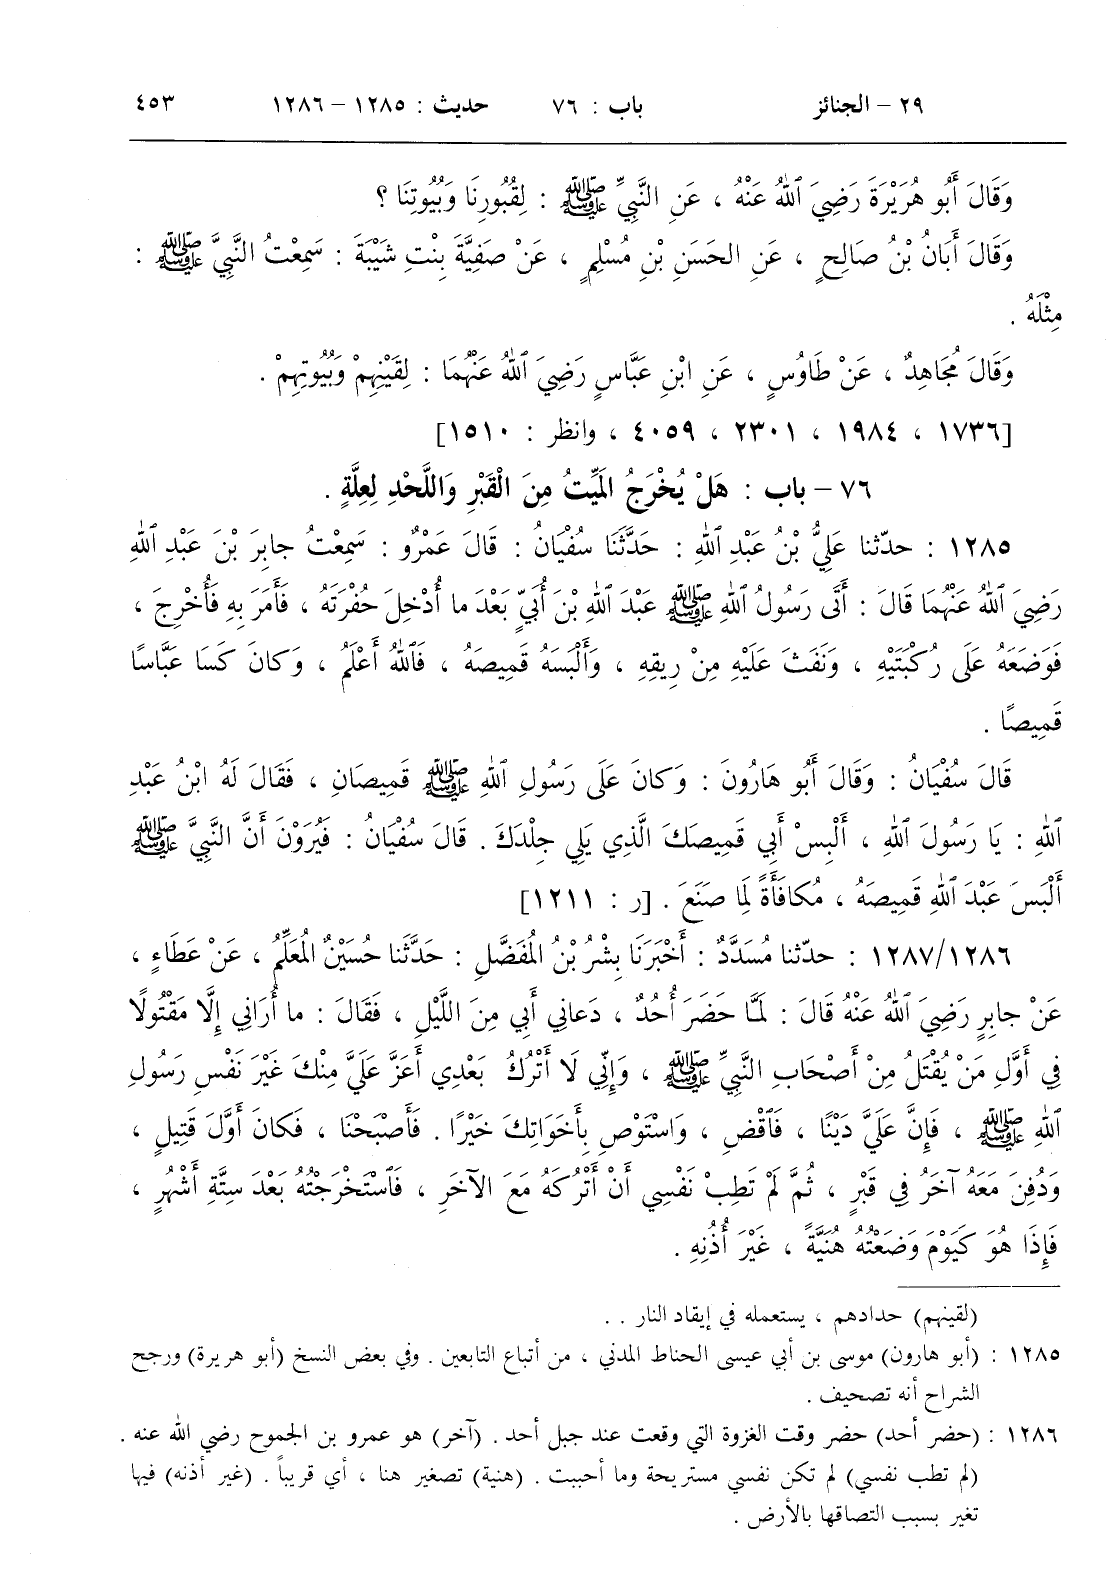 ٢٩ – الجنائز باب : ٧٦ حديث : ١٢٨٥ – ١٢٨٦ ٤٥٣
وَقَالَ أَبُو هُرَيْرَةَ رَضِيَ ٱللهُ عَنْهُ ، عَنِ النَّبِيِّ ﷺ : لِقُبُورِنَا وَبُيُوتِنَا ؟
وَقَالَ أَبَانُ بْنُ صَالِحٍ ، عَنِ الحَسَنِ بْنِ مُسْلِمٍ ، عَنْ صَفِيَّةَ بِنْتِ شَيْبَةَ : سَمِعْتُ النَّبِيَّ ﷺ :
مِثْلَهُ .
وَقَالَ مُجَاهِدٌ ، عَنْ طَاوُسٍ ، عَنِ ابْنِ عَبَّاسٍ رَضِيَ ٱللهُ عَنْهُمَا : لِقَيْنِهِمْ وَبُيُوتِهِمْ .
[١٧٣٦ ، ١٩٨٤ ، ٢٣٠١ ، ٤٠٥٩ ، وانظر : ١٥١٠]
٧٦ – باب : هَلْ يُخْرَجُ المَيِّتُ مِنَ الْقَبْرِ وَاللَّحْدِ لِعِلَّةٍ .
١٢٨٥ : حدّثنا عَلِيُّ بْنُ عَبْدِ ٱللهِ : حَدَّثَنَا سُفْيَانُ : قَالَ عَمْرٌو : سَمِعْتُ جابِرَ بْنَ عَبْدِ ٱللهِ
رَضِيَ ٱللهُ عَنْهُمَا قَالَ : أَتَى رَسُولُ ٱللهِ ﷺ عَبْدَ ٱللهِ بْنَ أُبَيٍّ بَعْدَ ما أُدْخِلَ حُفْرَتَهُ ، فَأَمَرَ بِهِ فَأُخْرِجَ ،
فَوَضَعَهُ عَلَى رُكْبَتَيْهِ ، وَنَفَثَ عَلَيْهِ مِنْ رِيقِهِ ، وَأَلْبَسَهُ قَمِيصَهُ ، فَٱللهُ أَعْلَمُ ، وَكانَ كَسَا عَبَّاسًا
قَمِيصًا .
قَالَ سُفْيَانُ : وَقَالَ أَبُو هَارُونَ : وَكانَ عَلَى رَسُولِ ٱللهِ ﷺ قَمِيصَانِ ، فَقَالَ لَهُ ابْنُ عَبْدِ
ٱللهِ : يَا رَسُولَ ٱللهِ ، أَلْبِسْ أَبِي قَمِيصَكَ الَّذِي يَلِي جِلْدَكَ . قَالَ سُفْيَانُ : فَيُرَوْنَ أَنَّ النَّبِيَّ ﷺ
أَلْبَسَ عَبْدَ ٱللهِ قَمِيصَهُ ، مُكافَأَةً لِمَا صَنَعَ . [ر : ١٢١١]
١٢٨٧/١٢٨٦ : حدّثنا مُسَدَّدٌ : أَخْبَرَنَا بِشْرُ بْنُ الْمُفَضَّلِ : حَدَّثَنَا حُسَيْنٌ الْمُعَلِّمُ ، عَنْ عَطَاءٍ ،
عَنْ جابِرٍ رَضِيَ ٱللهُ عَنْهُ قَالَ : لَمَّا حَضَرَ أُحُدٌ ، دَعانِي أَبِي مِنَ اللَّيْلِ ، فَقَالَ : ما أُرَانِي إِلَّا مَقْتُولًا
فِي أَوَّلِ مَنْ يُقْتَلُ مِنْ أَصْحَابِ النَّبِيِّ ﷺ ، وَإِنِّي لَا أَتْرُكُ بَعْدِي أَعَزَّ عَلَيَّ مِنْكَ غَيْرَ نَفْسِ رَسُولِ
ٱللهِ ﷺ ، فَإِنَّ عَلَيَّ دَيْنًا ، فَٱقْضِ ، وَاسْتَوْصِ بِأَخَوَاتِكَ خَيْرًا . فَأَصْبَحْنَا ، فَكانَ أَوَّلَ قَتِيلٍ ،
وَدُفِنَ مَعَهُ آخَرُ فِي قَبْرٍ ، ثُمَّ لَمْ تَطِبْ نَفْسِي أَنْ أَتْرُكَهُ مَعَ الآخَرِ ، فَٱسْتَخْرَجْتُهُ بَعْدَ سِتَّةِ أَشْهُرٍ ،
فَإِذَا هُوَ كَيَوْمَ وَضَعْتُهُ هُنَيَّةً ، غَيْرَ أُذُنِهِ .
(لقينهم) حدادهم ، يستعمله في إيقاد النار . .
١٢٨٥ : (أبو هارون) موسى بن أبي عيسى الحناط المدني ، من أتباع التابعين . وفي بعض النسخ (أبو هريرة) ورجح
الشراح أنه تصحيف .
١٢٨٦ : (حضر أحد) حضر وقت الغزوة التي وقعت عند جبل أحد . (آخر) هو عمرو بن الجموح رضي الله عنه .
(لم تطب نفسي) لم تكن نفسي مستريحة وما أحببت . (هنية) تصغير هنا ، أي قريباً . (غير أذنه) فيها
تغير بسبب التصاقها بالأرض .